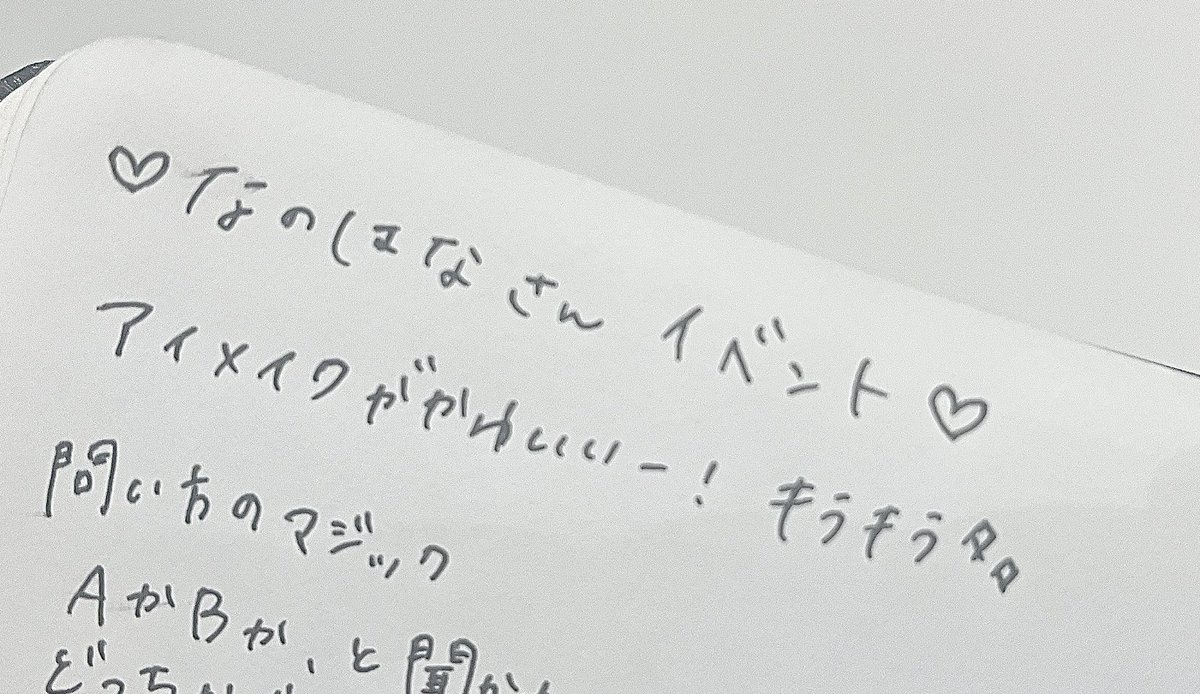 ♡なのはなさん イベント♡
アイメイクがかわいいー! キラキラ
問い方のマジック
AかBか、と聞か
どっち